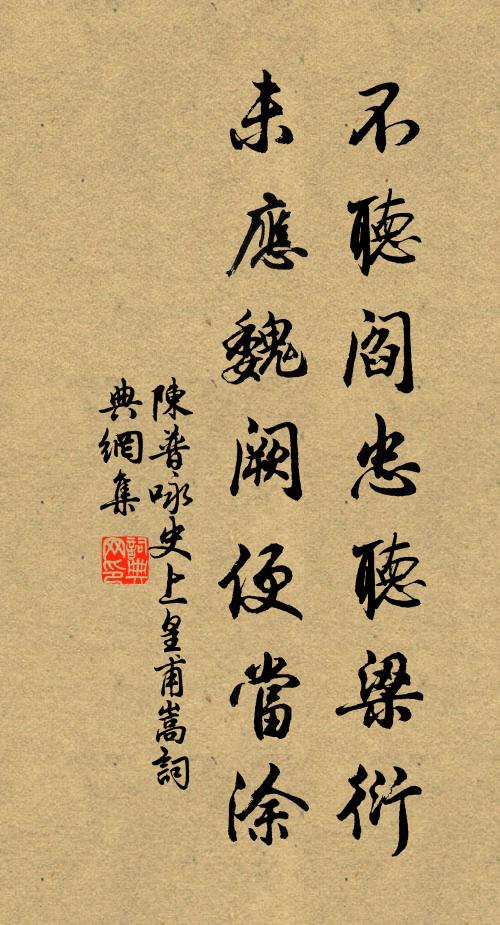 不聽閻忠聽梁衍
未應魏阙便當涂
陳普咏史上皇甫嵩詞
典網集
詞典网印